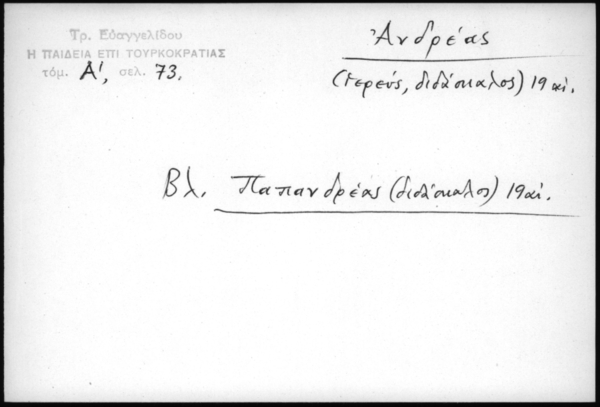 Τρ. Εὐαγγελίδου
Η ΠΑΙΔΕΙΑ ΕΠΙ ΤΟΥΡΚΟΚΡΑΤΙΑΣ
τόμ. Α', σελ. 73.
Ἀνδρέας
(ἱερεύς, διδάσκαλος) 19 αἰ.
Βλ. Παπανδρέας (διδάσκαλος) 19 αἰ.